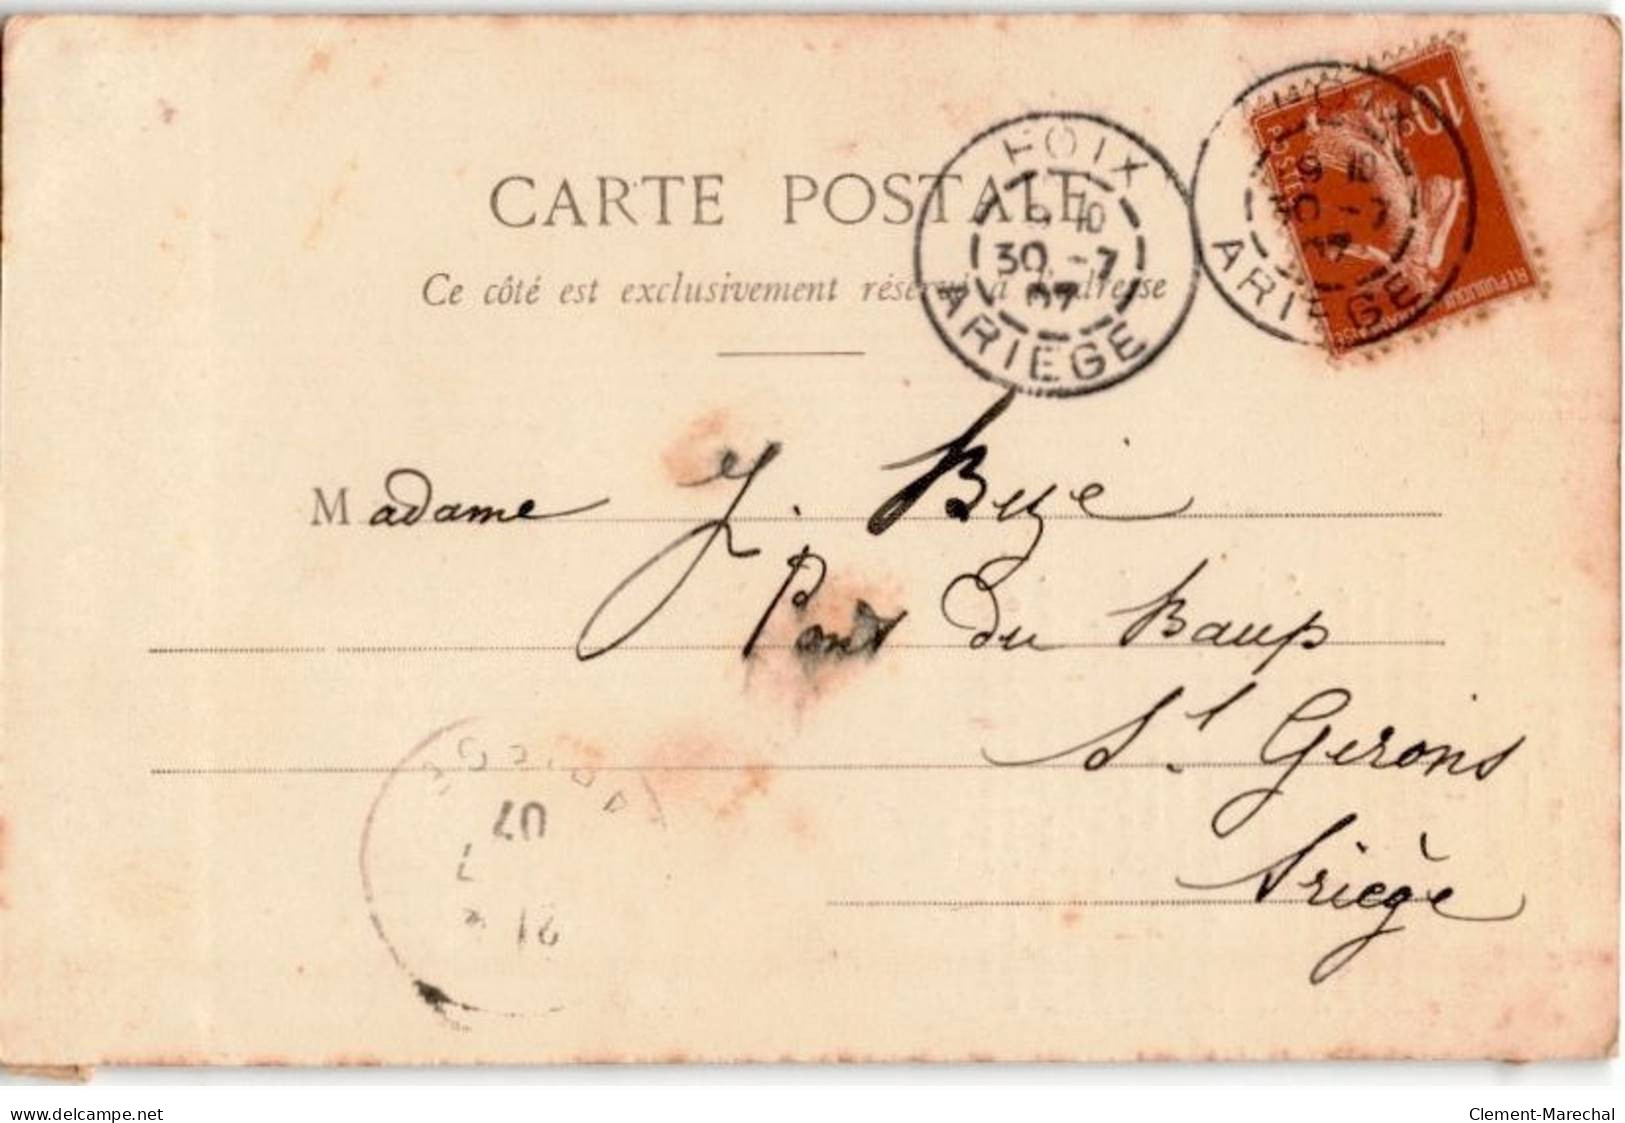 CARTE POSTALE
Ce côté est exclusivement réservé à l'adresse
FOIX
9 10
30 -7
07
ARIEGE
FOIX
9 10
30 -7
07
ARIEGE
10
POSTES
Madame J. Bezé
Pont du Baup
St. Gerons
Ariège
07
7
delcampe.net
Clement-Marechal